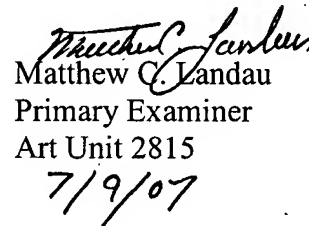 Matthew C. Landau
Matthew C. Landau
Primary Examiner
Art Unit 2815
7/9/07